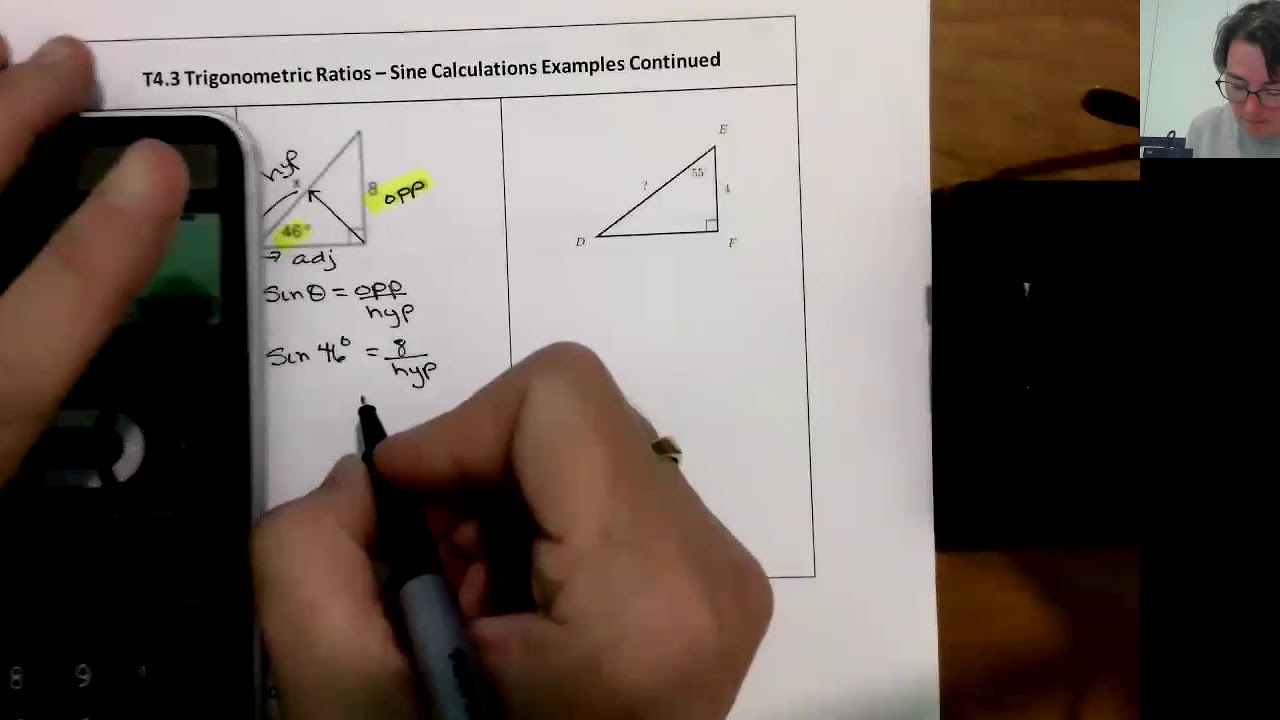 T4.3 Trigonometric Ratios – Sine Calculations Examples Continued
hyp
x
8
opp
46°
→ adj
sin θ = opp
hyp
sin 46° = 8
hyp
E
?
55
4
D
F
8
9